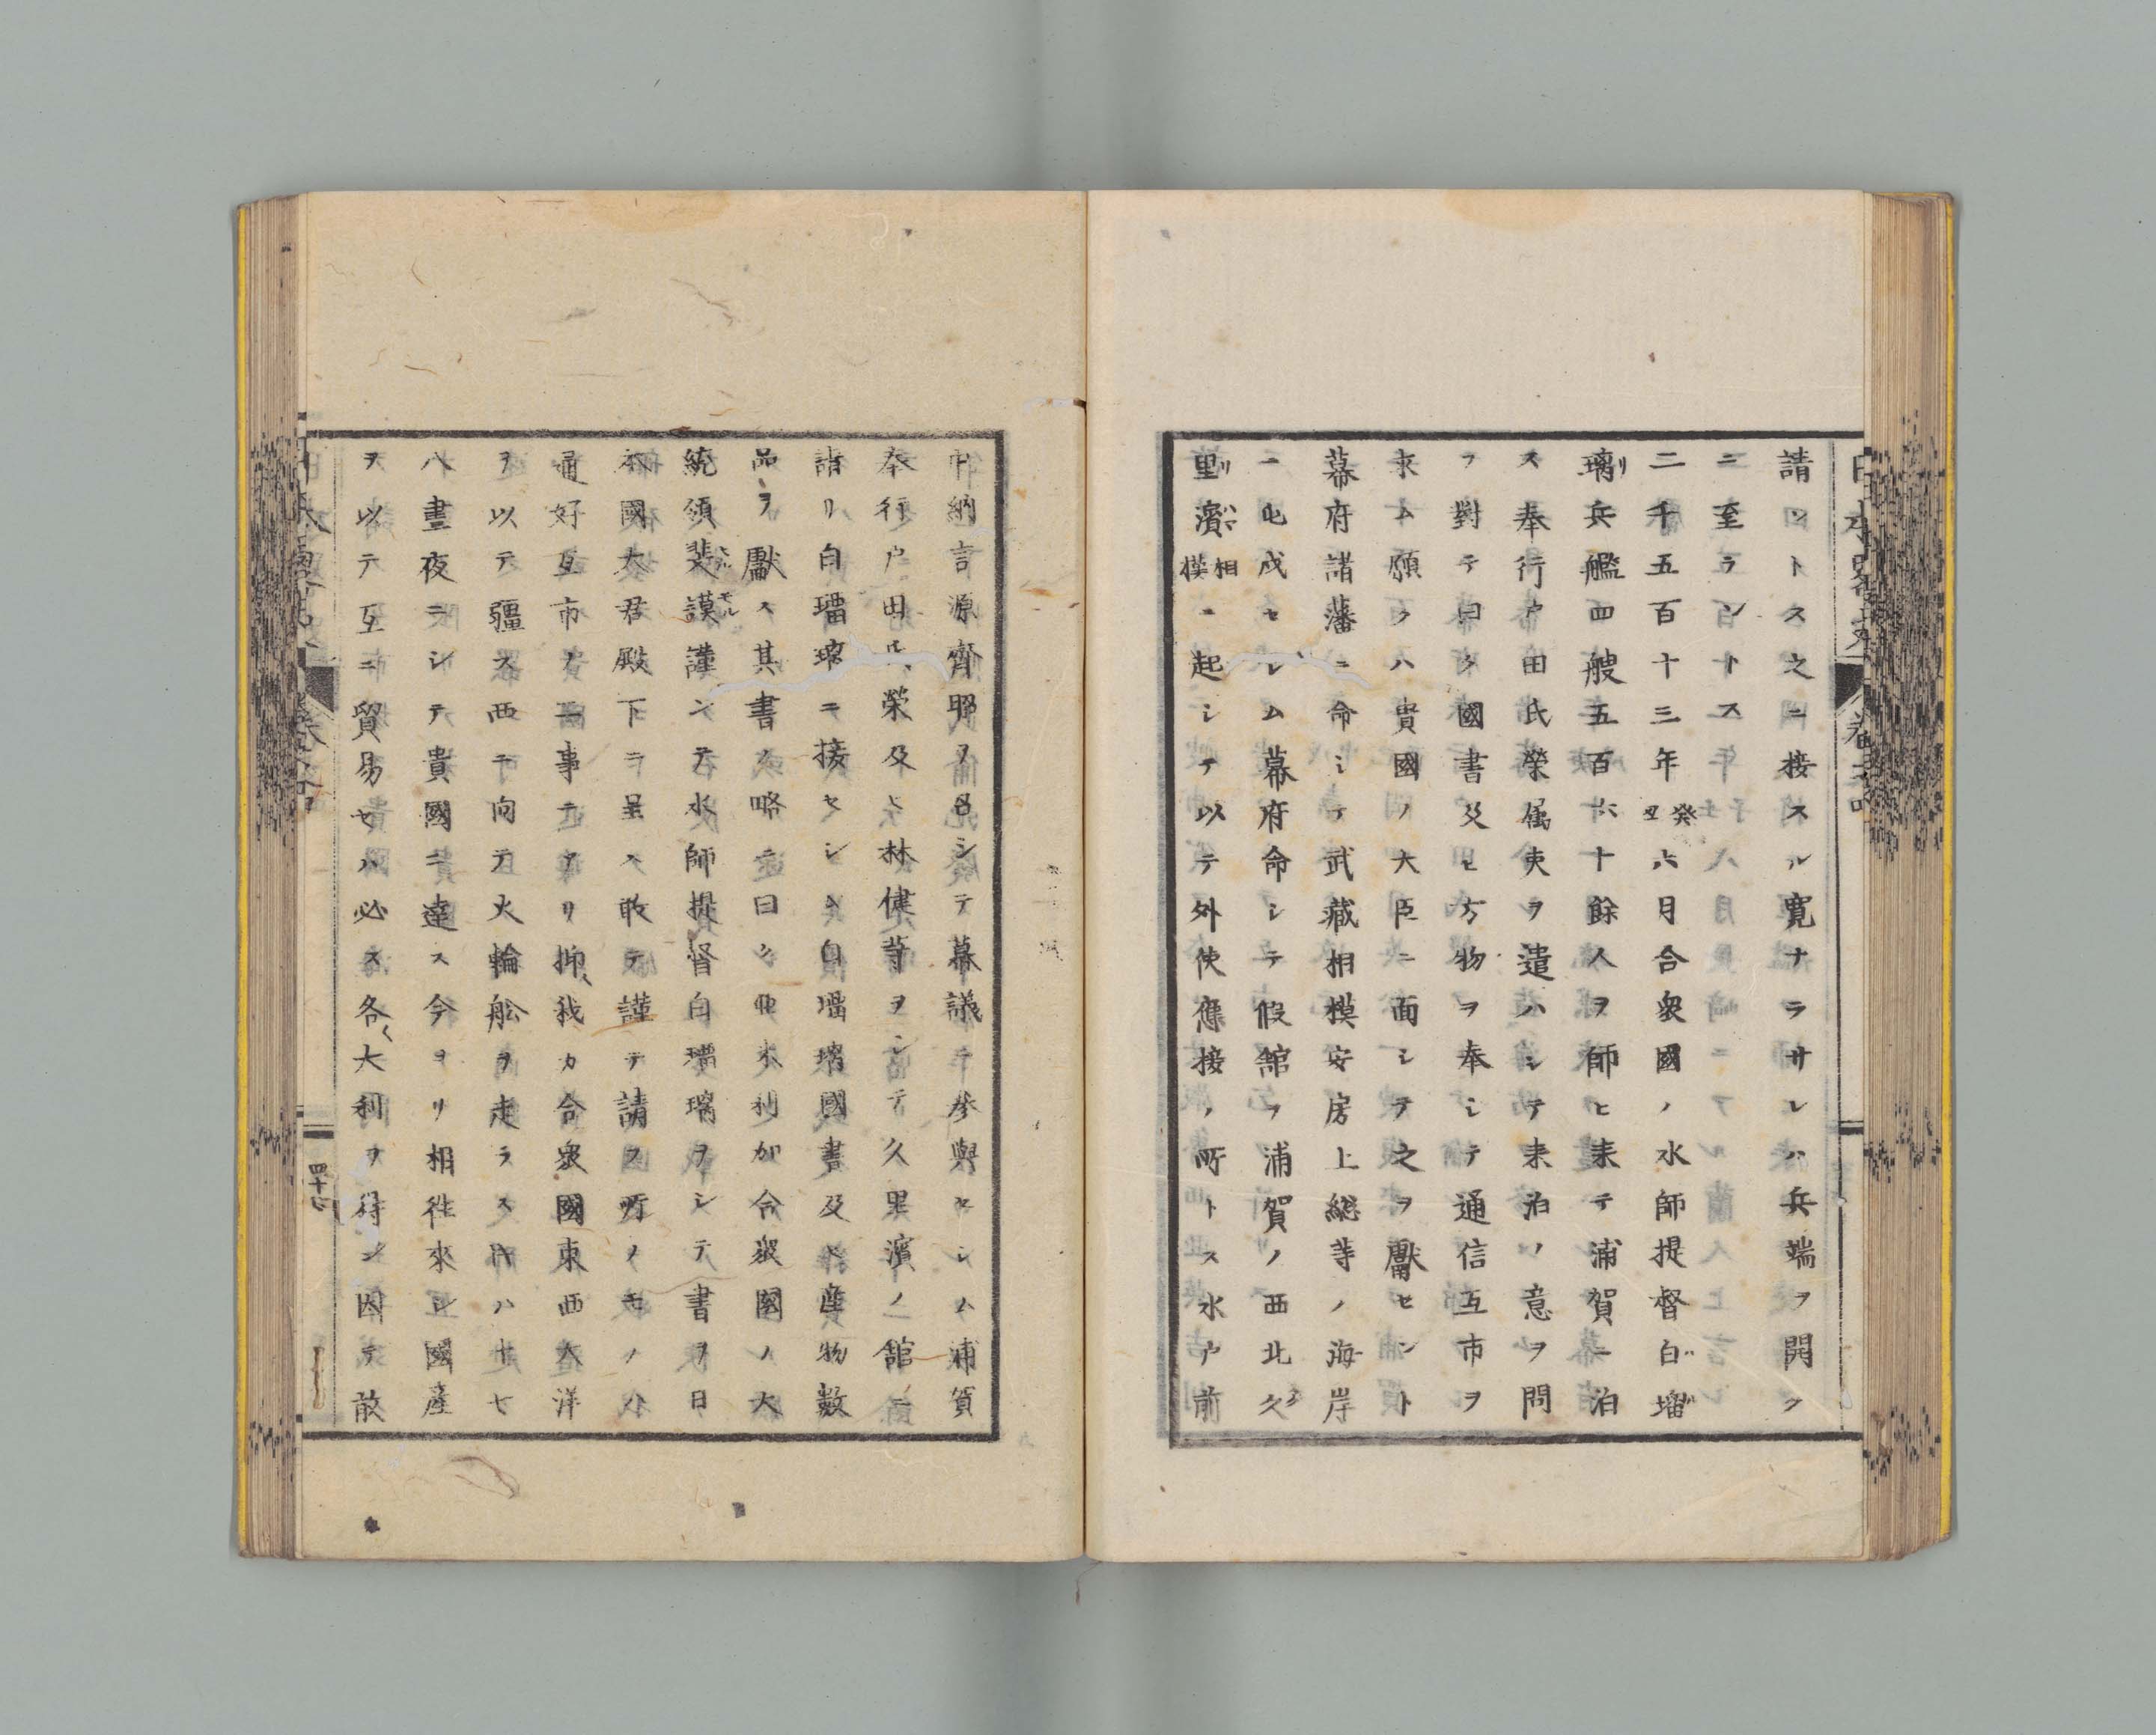 請ントス之ニ接スル寛ナラサレハ兵端ヲ開ク
ニ至ラントス
二千五百十三年癸丑六月合衆國ノ水師提督白瑠
璃兵艦四艘五百六十餘人ヲ師ヒ来テ浦賀ニ泊
ス奉行戸田氏榮属吏ヲ遣ハシテ来泊ノ意ヲ問
フ對テ曰ク國書及ヒ方物ヲ奉シテ通信互市ヲ
求ム願クハ貴國ノ大臣ニ面シテ之ヲ獻センㇳ
幕府諸藩ニ命シテ武藏相摸安房上総等ノ海岸
ニ屯戍セシム幕府命シテ假舘ヲ浦賀ノ西北久
里濱相摸ニ起シテ以テ外使應接ノ所トス水戸前
中納言源齊昭ヲ召シテ幕議ニ參與セシム浦賀
奉行戸田氏榮及ヒ林健等ヲシテ久里濱ノ舘ニ
請リ白瑠璃ニ接セシム白瑠璃國書及ヒ産物數
品ヲ獻ス其書ノ略ニ曰ク亜米利加合衆國ノ大
統領斐謨謹ンテ水師提督白瑠璃ヲシテ書ヲ日
本國大君殿下ニ呈ス敢テ謹テ請フ所ノモノハ
通好互市ノ二事ニアリ抑、我カ合衆國東西大洋
ヲ以テ疆ス西ニ向テ火輪舩ヲ走ラスㇳキハ十七
八晝夜ニシテ貴國ニ達ス今ヨリ相往來シ國產
ヲ以テ互ニ貿易セハ必ス各〻大利ヲ得ン因テ敢
四十七